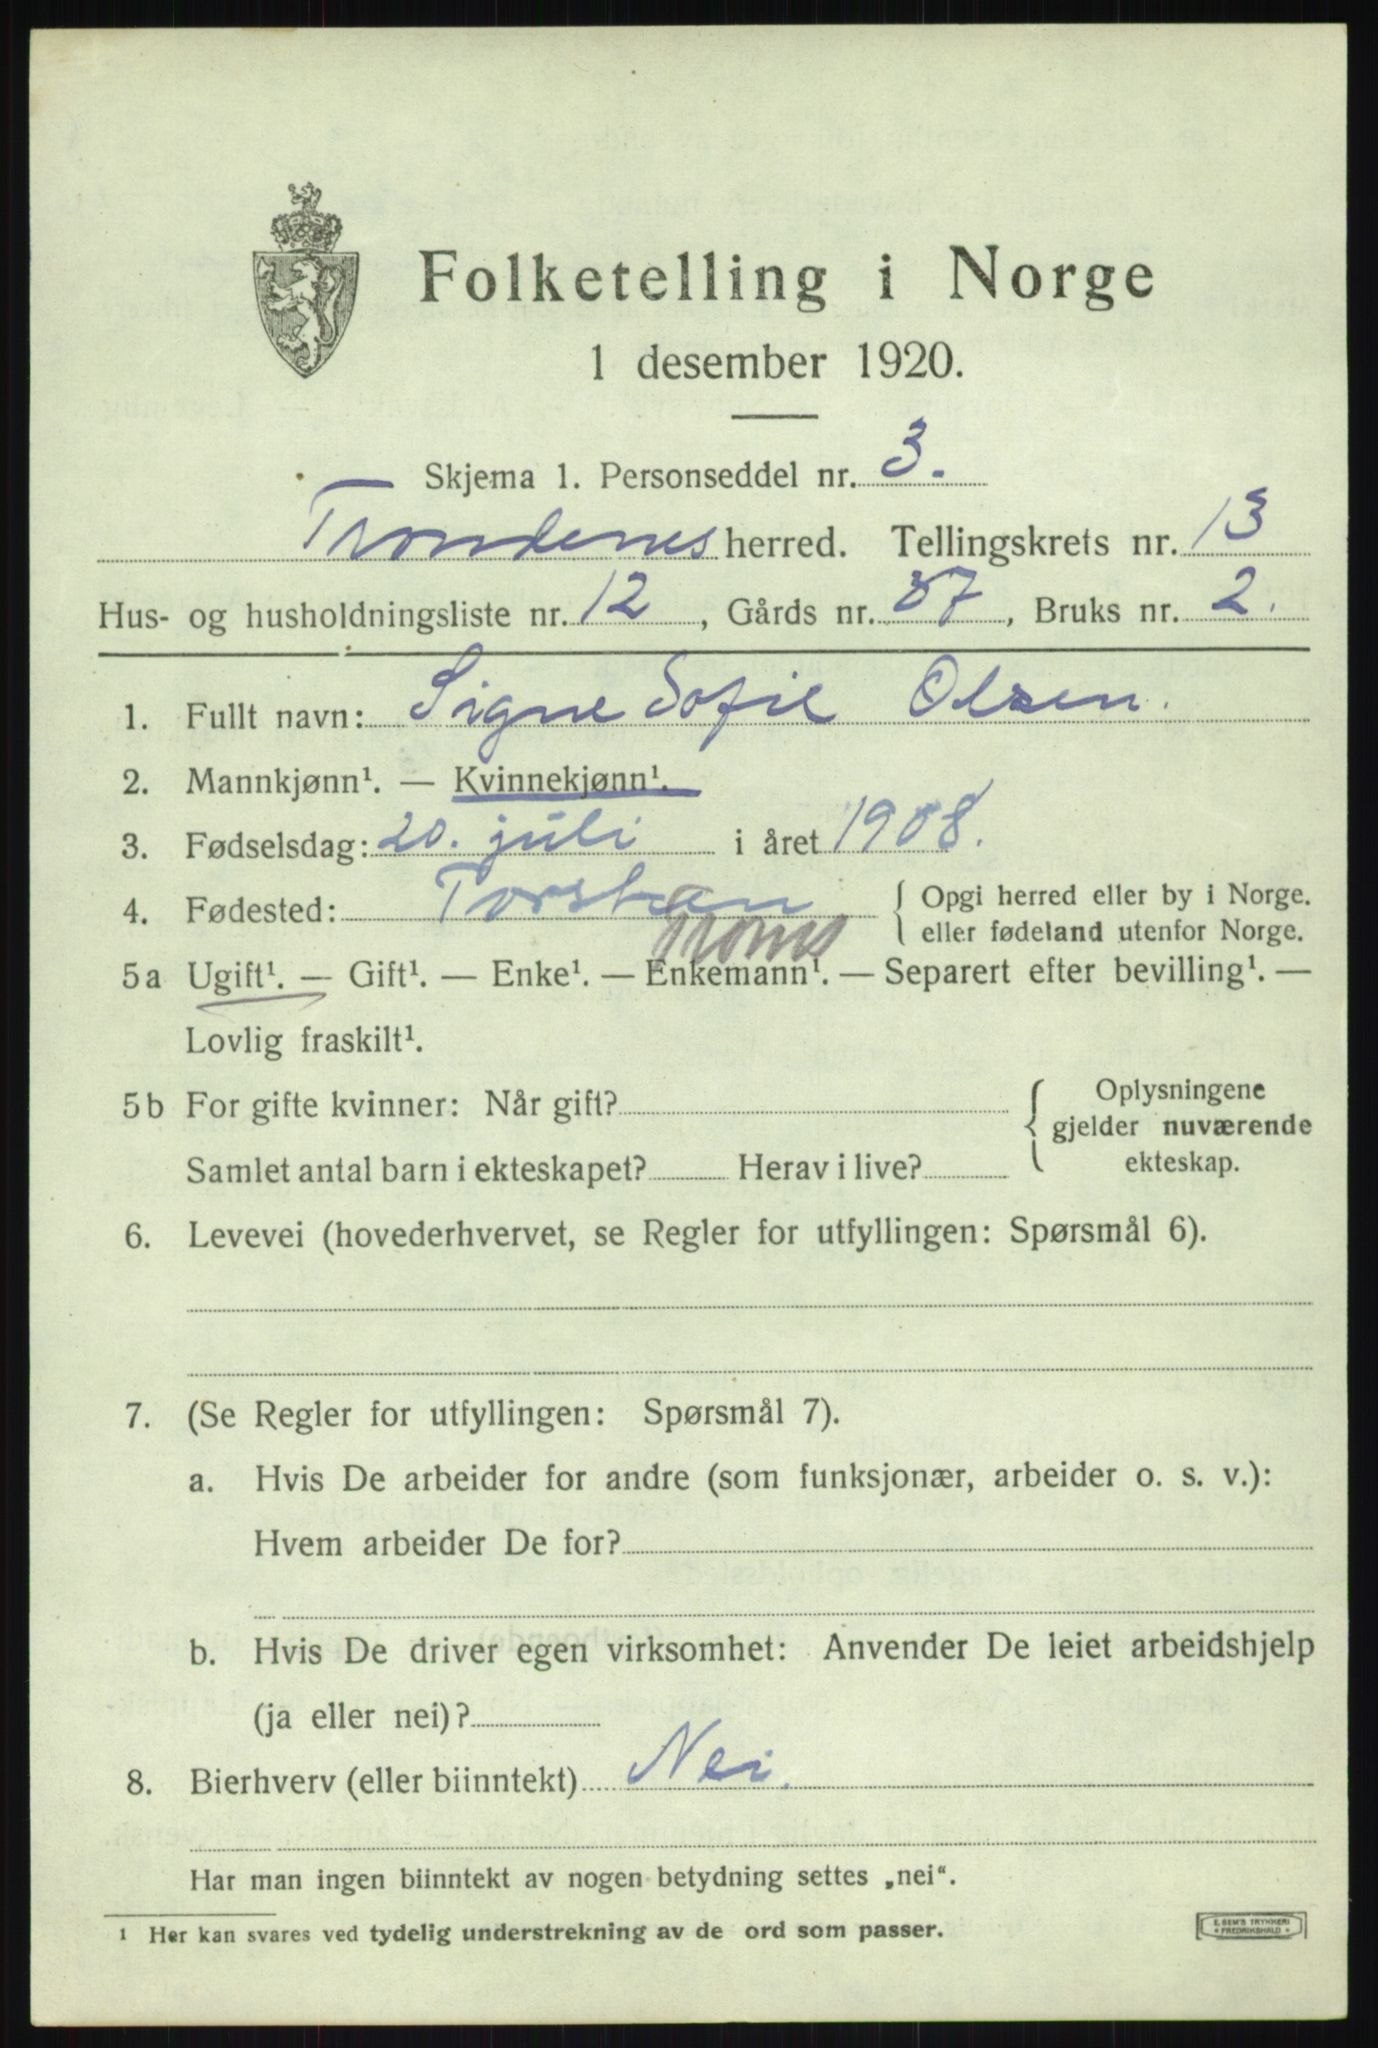 Folketelling i Norge
1 desember 1920.
Skjema 1. Personseddel nr. 3.
Trondenes herred. Tellingskrets nr. 13
Hus- og husholdningsliste nr. 12, Gårds nr. 37, Bruks nr. 2.
1. Fullt navn: Signe Sofie Olsen.
2. Mannkjønn¹. — Kvinnekjønn¹.
3. Fødselsdag: 20. juli i året 1908.
4. Fødested: Torskan { Opgi herred eller by i Norge.
Troms eller fødeland utenfor Norge.
5a Ugift¹. — Gift¹. — Enke¹. — Enkemann¹. — Separert efter bevilling¹. —
Lovlig fraskilt¹.
5b For gifte kvinner: Når gift? { Oplysningene
gjelder nuværende
Samlet antal barn i ekteskapet? Herav i live? ekteskap.
6. Levevei (hovederhvervet, se Regler for utfyllingen: Spørsmål 6).
7. (Se Regler for utfyllingen: Spørsmål 7).
a. Hvis De arbeider for andre (som funksjonær, arbeider o. s. v.):
Hvem arbeider De for?
b. Hvis De driver egen virksomhet: Anvender De leiet arbeidshjelp
(ja eller nei)?
8. Bierhverv (eller biinntekt) Nei.
Har man ingen biinntekt av nogen betydning settes „nei“.
¹ Her kan svares ved tydelig understrekning av de ord som passer.
E. SEM'S TRYKKERI
FREDRIKSHALD